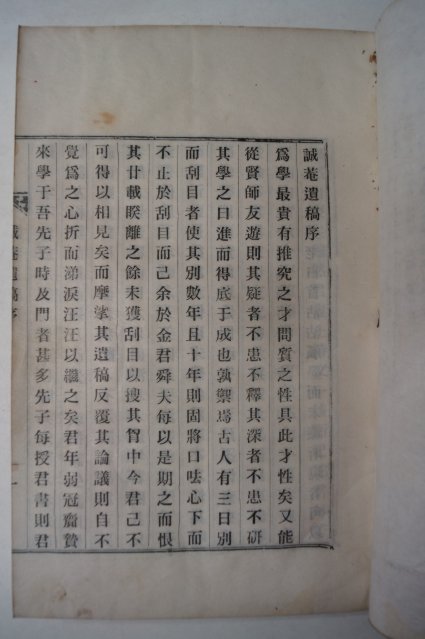 誠菴遺稿序
爲學最貴有推究之才問質之性具此才性矣又能
從賢師友遊則其疑者不患不釋其深者不患不硏
其學之日進而得底于成也孰禦焉古人有三日別
而刮目者使其別數年且十年則固將口呿心下而
不止於刮目而已余於金君舜夫每以是期之而恨
其廿載睽離之餘未獲刮目以搜其胷中今君已不
可得以相見矣而摩挲其遺稿反覆其論議則自不
覺爲之心折而涕淚汪汪以繼之矣君年弱冠齎贄
來學于吾先子時及門者甚多先子每授君書則君
誠菴遺稿序
一